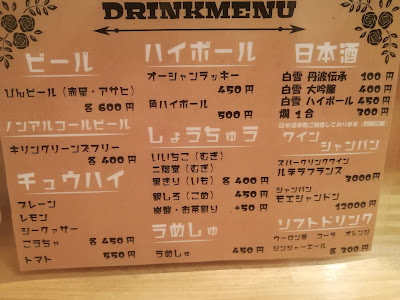 DRINKMENU
ビール
びんビール（赤星・アサヒ）
各 600円
ノンアルコールビール
キリングリーンズフリー
各 400円
チュウハイ
プレーン
レモン
シークァサー
こうちゃ 各 450円
トマト 550円
ハイボール
オーシャンラッキー
450円
角ハイボール
500円
しょうちゅう
いいちこ（むぎ）
二階堂（むぎ）
黒きり（いも） 各 400円
銀しろ（こめ） 450円
炭酸・お茶割り +50円
うめしゅ
うめしゅ 450円
日本酒
白雪 丹波伝承 100円
白雪 大吟醸 400円
白雪 ハイボール 450円
燗 1合 300円
ワイン
シャンパン
スパークリングワイン
ルテラフランス
3000円
シャンパン
モエシャンドン
12000円
ソフトドリンク
ウーロン茶 コーラ オレンジ
ジンジャーエール 各 300円